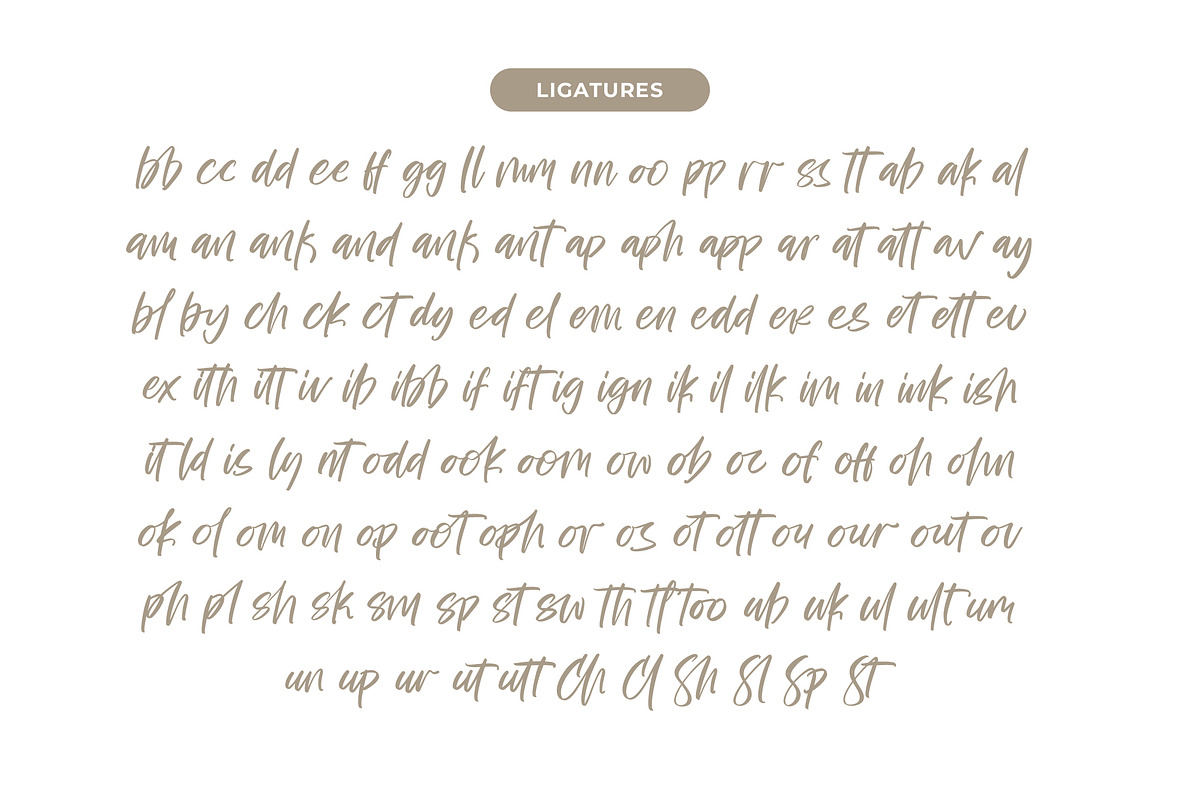 LIGATURES
bb cc dd ee ff gg ll mm nn oo pp rr ss tt ab ak al
am an ank and ank ant ap aph app ar at att av ay
bl by ch ck ct dy ed el em en edd er es et ett ev
ex ith itt iv ib ibb if ift ig ign ik il ilk im in ink ish
it ld is ly nt odd ook oom ow ob oc of off oh ohn
ok ol om on op oot oph or os ot ott ou our out ov
ph pl sh sk sm sp st sw th tl too ub uk ul ult um
un up ur ut utt Ch Cl Sh Sl Sp St